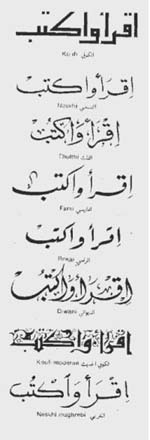 اقرأ واكتب
Kufi الكوفي
اقرأ واكتب
Naskhi النسخي
اِقْرَأْ وَاكْتُبْ
Thulthi الثلث
اقرأ واكتب
Farsi الفارسي
اقرأ واكتب
اقرأ واكتب
Diwani الديواني
اقرأ واكتب
Koufi moderne الكوفي الحديث
اِقْرَأْ وَاكْتُبْ
Naskhi maghrebi